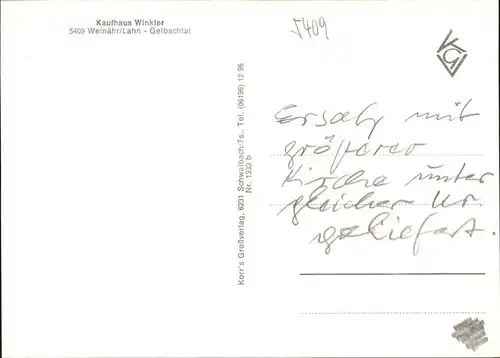 Kaufhaus Winkler
5409 Weinähr/Lahn - Gelbachtal
5409
KGV
Korr's Großverlag, 6231 Schwalbach/Ts., Tel. (06196) 12 96
Nr. 1333 b
Ersatz mit
größerer
Kirche unter
gleicher Nr.
geliefert.